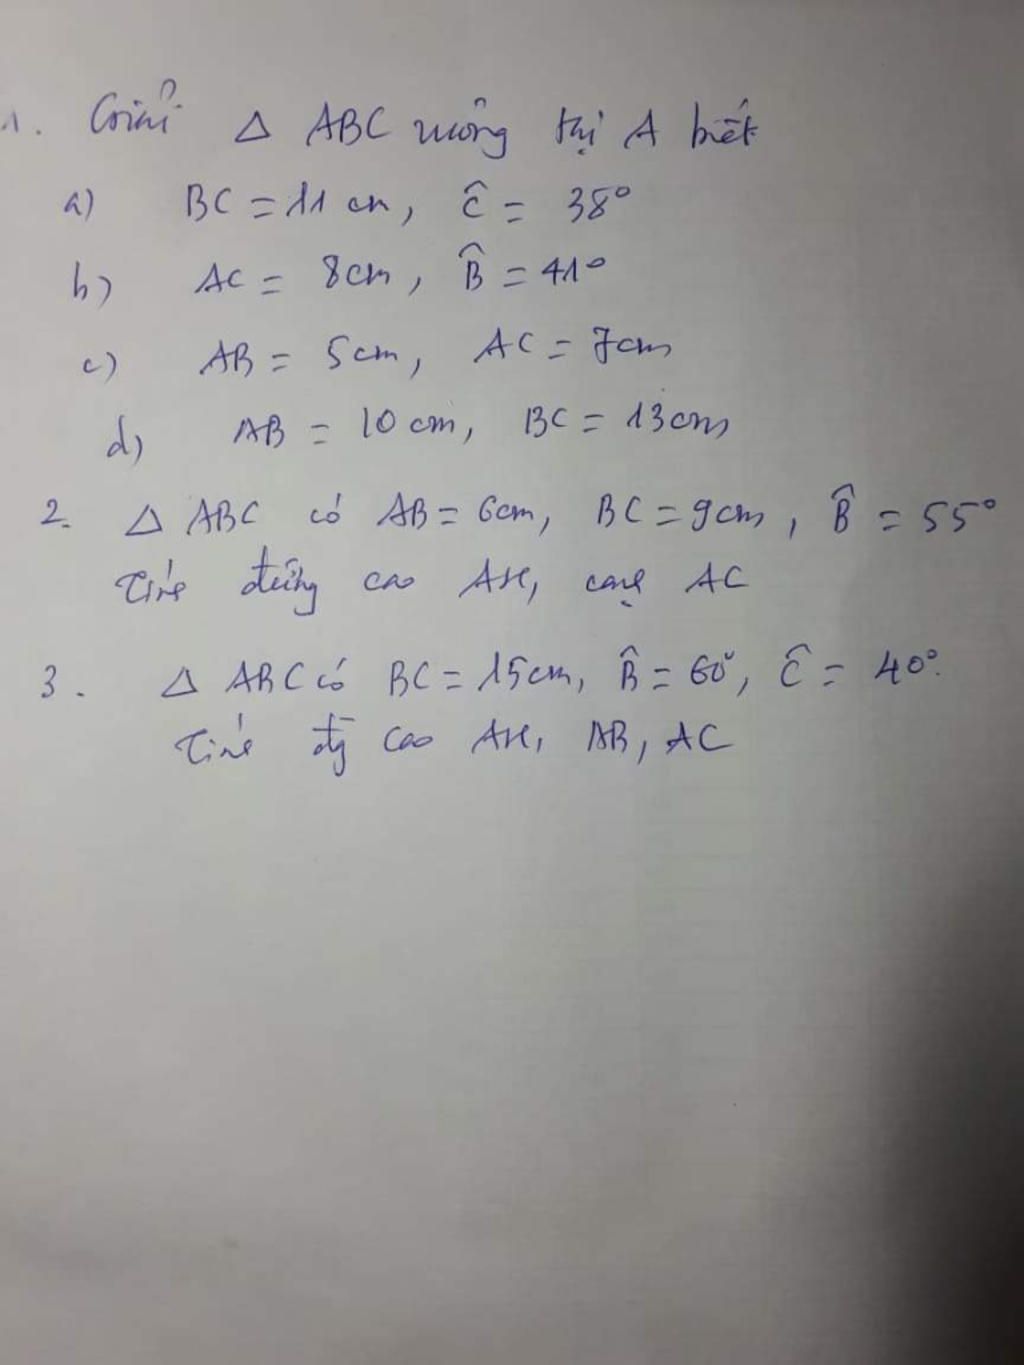 1. Giải Δ ABC vuông tại A biết
a) BC = 11 cm, Ĉ = 38°
b) AC = 8cm, B̂ = 41°
c) AB = 5cm, AC = 7cm
d) AB = 10 cm, BC = 13cm
2. Δ ABC có AB = 6cm, BC = 9cm, B̂ = 55°
Tính đường cao AH, cạnh AC
3. Δ ABC có BC = 15cm, B̂ = 60°, Ĉ = 40°.
Tính đg cao AH, AB, AC